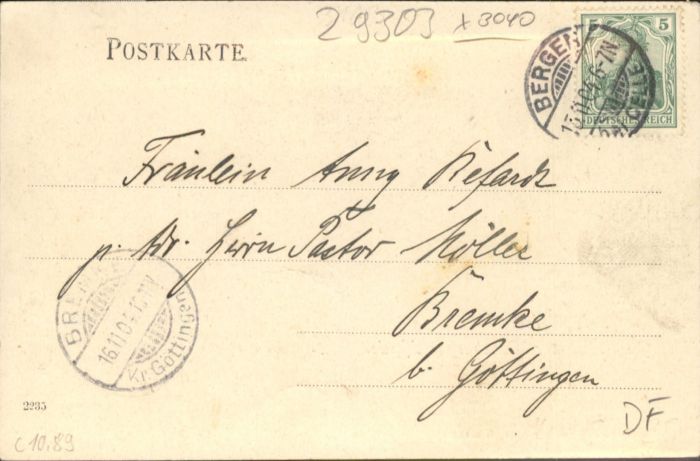 29303 x 3040
POSTKARTE
5 5
DEUTSCHES REICH
BERGEN
15.11.04. 6-7N
(BZ. CELLE)
Fräulein Anny
p. Adr. Herrn Pastor Möller
Bremke
b. Göttingen
16.11.04
Kr. Göttingen
2235
DF
c 10.89